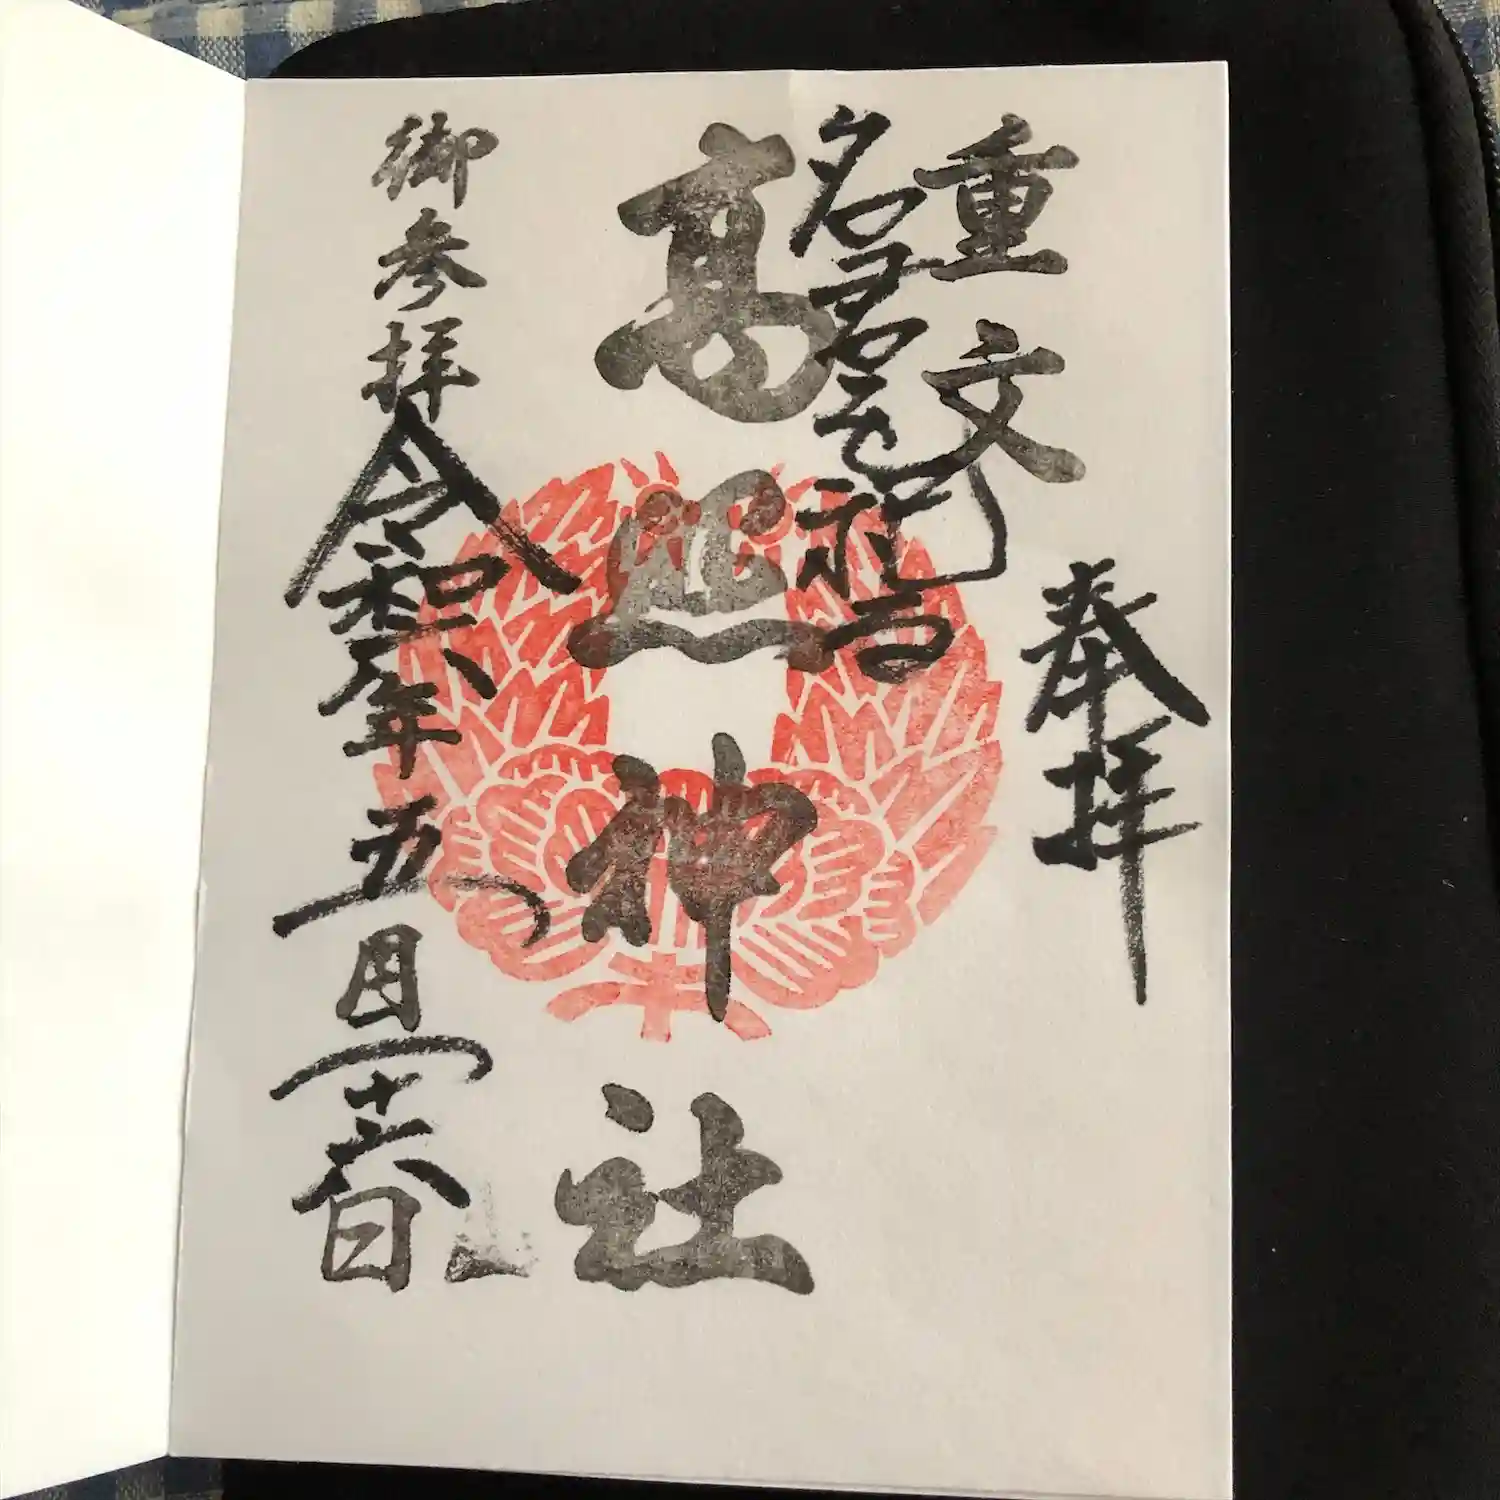 奉拝
重文
名君を祀る
高照神社
御参拝 令和六年五月十六日